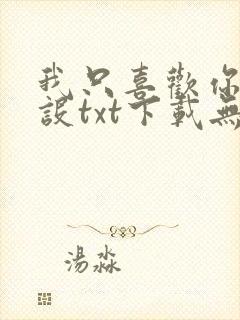 我只喜歡你
設txt下載無
湯淼